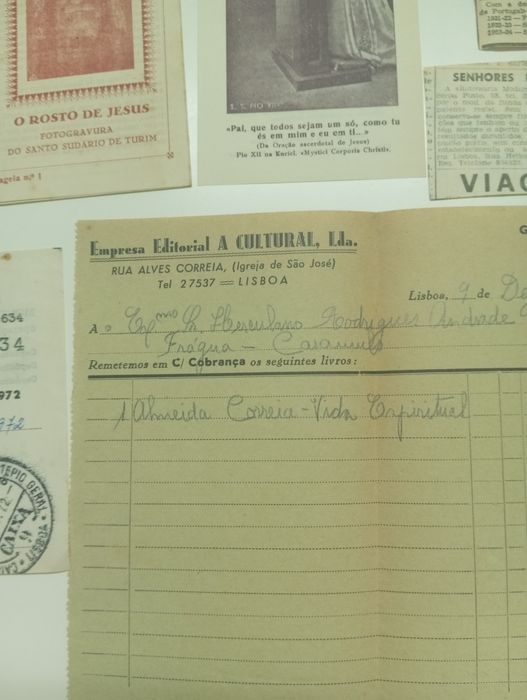 O ROSTO DE JESUS
FOTOGRAVURA
DO SANTO SUDÁRIO DE TURIM
agela n.º 1
«Pai, que todos sejam um só, como tu
és em mim e eu em ti...»
(Da Oração sacerdotal de Jesus)
Pio XII na Encícl. «Mystici Corporis Christi».
Com a de
de Portugal
SENHORES
VIAG
634
34
972
1972
TEPIO GERAL
CAIXA
9
LISBOA
Empresa Editorial A CULTURAL, Lda.
RUA ALVES CORREIA, (Igreja de São José)
Tel 27537 = LISBOA
G
Lisboa, 9 de De
A o Exmo Sr. Herculano Rodrigues Andrade
Frágua - Caramulo
Remetemos em C/ Cobrança os seguintes livros:
1 Almeida Correia - Vida Espiritual